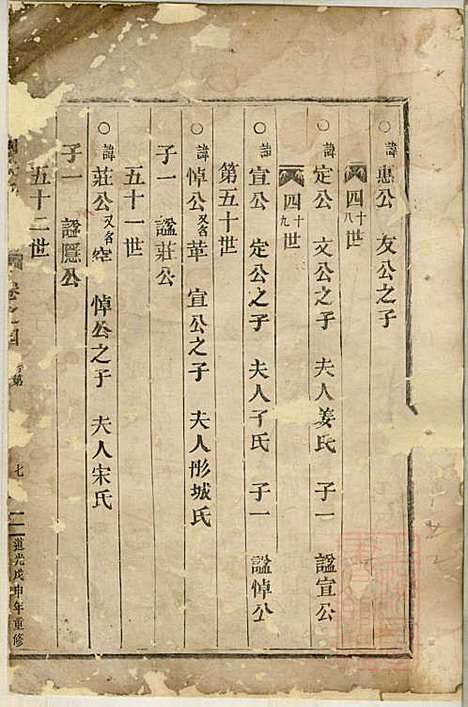 ○諱惠公　友公之子
四十八世
○諱定公　文公之子　夫人姜氏　子一　諡宣公
四十九世
○諱宣公　定公之子　夫人子氏　子一　諡悼公
第五十世
○諱悼公又名革　宣公之子　夫人彤城氏
子一　諡莊公
五十一世
○諱莊公又名　悼公之子　夫人宋氏
子一　諡隱公
五十二世
卷之四　第　七　道光戊申年重修